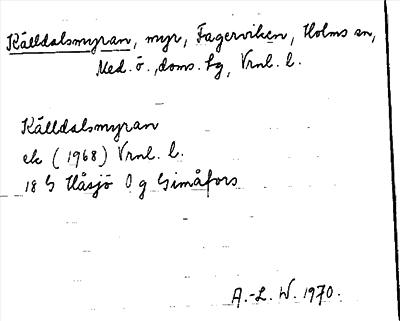 Källdalsmyran, myr, Fagerviken, Holms sn,
Med. ö., doms. hg, Vrnl. l.
Källdalsmyran
ek (1968) Vrnl. l.
18 G Håsjö O g Gimåfors
A.-L. W. 1970.